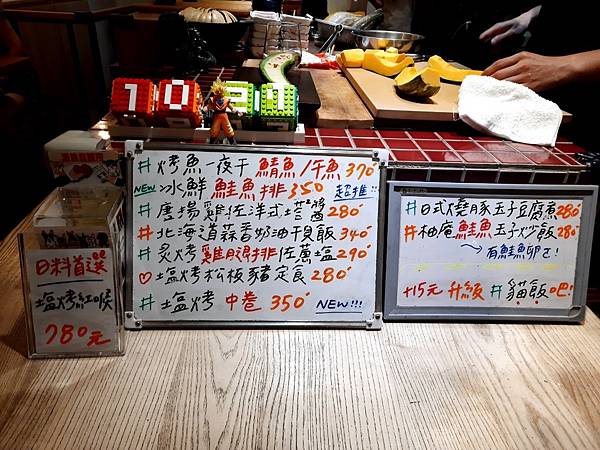 10 21
日料首選
塩烤紅喉
780元
# 烤魚一夜干 鯖魚/午魚 370
NEW 冰鮮 鮭魚排 350 超推!!
# 廣場雞佐洋式塔醬 280
# 北海道蒜香奶油干貝飯 340
# 炙烤雞腿排佐蔥塩 290
♡ 塩烤松板豬定食 280
# 塩烤中卷 350 NEW!!!
# 日式燒豚玉子豆腐煮 280
# 柚庵鮭魚玉子炒飯 280
→ 有鮭魚卵ㄛ!
+15元 升級 # 貓飯吧!